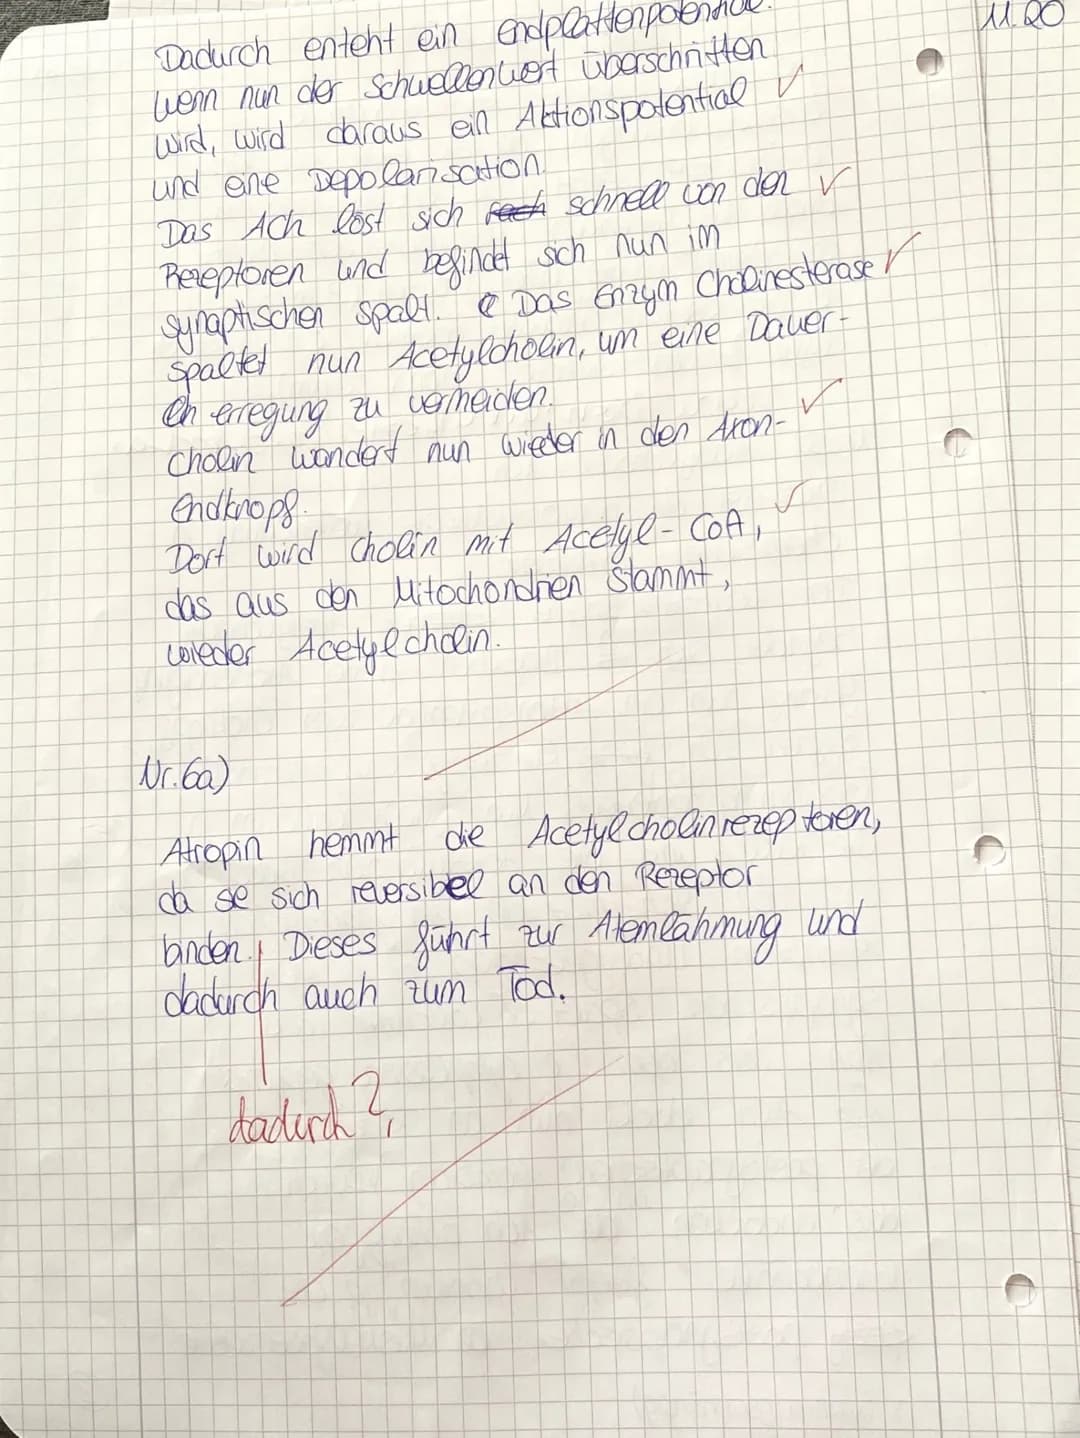 11.20
Dadurch enteht ein Endplattenpotential.
Wenn nun der Schwellenwert überschritten
wird, wird daraus ein Aktionspotential ✓
und eine Depolarisation.
Das ACh löst sich schnell von den ✓
Rezeptoren und befindet sich nun im
synaptischen Spalt. Das Enzym Cholinesterase ✓
spaltet nun Acetylcholin, um eine Dauer-
erregung zu vermeiden.
Cholin wandert nun wieder in den Axon- ✓
Endknopf.
Dort wird Cholin mit Acetyl-CoA, ✓
das aus den Mitochondrien stammt,
wieder Acetylcholin.
Nr.6a)
Atropin hemmt die Acetylcholinrezeptoren,
da se sich reversibel an den Rezeptor
binden. Dieses führt zur Atemlähmung und
dadurch auch zum Tod.
dadurch?